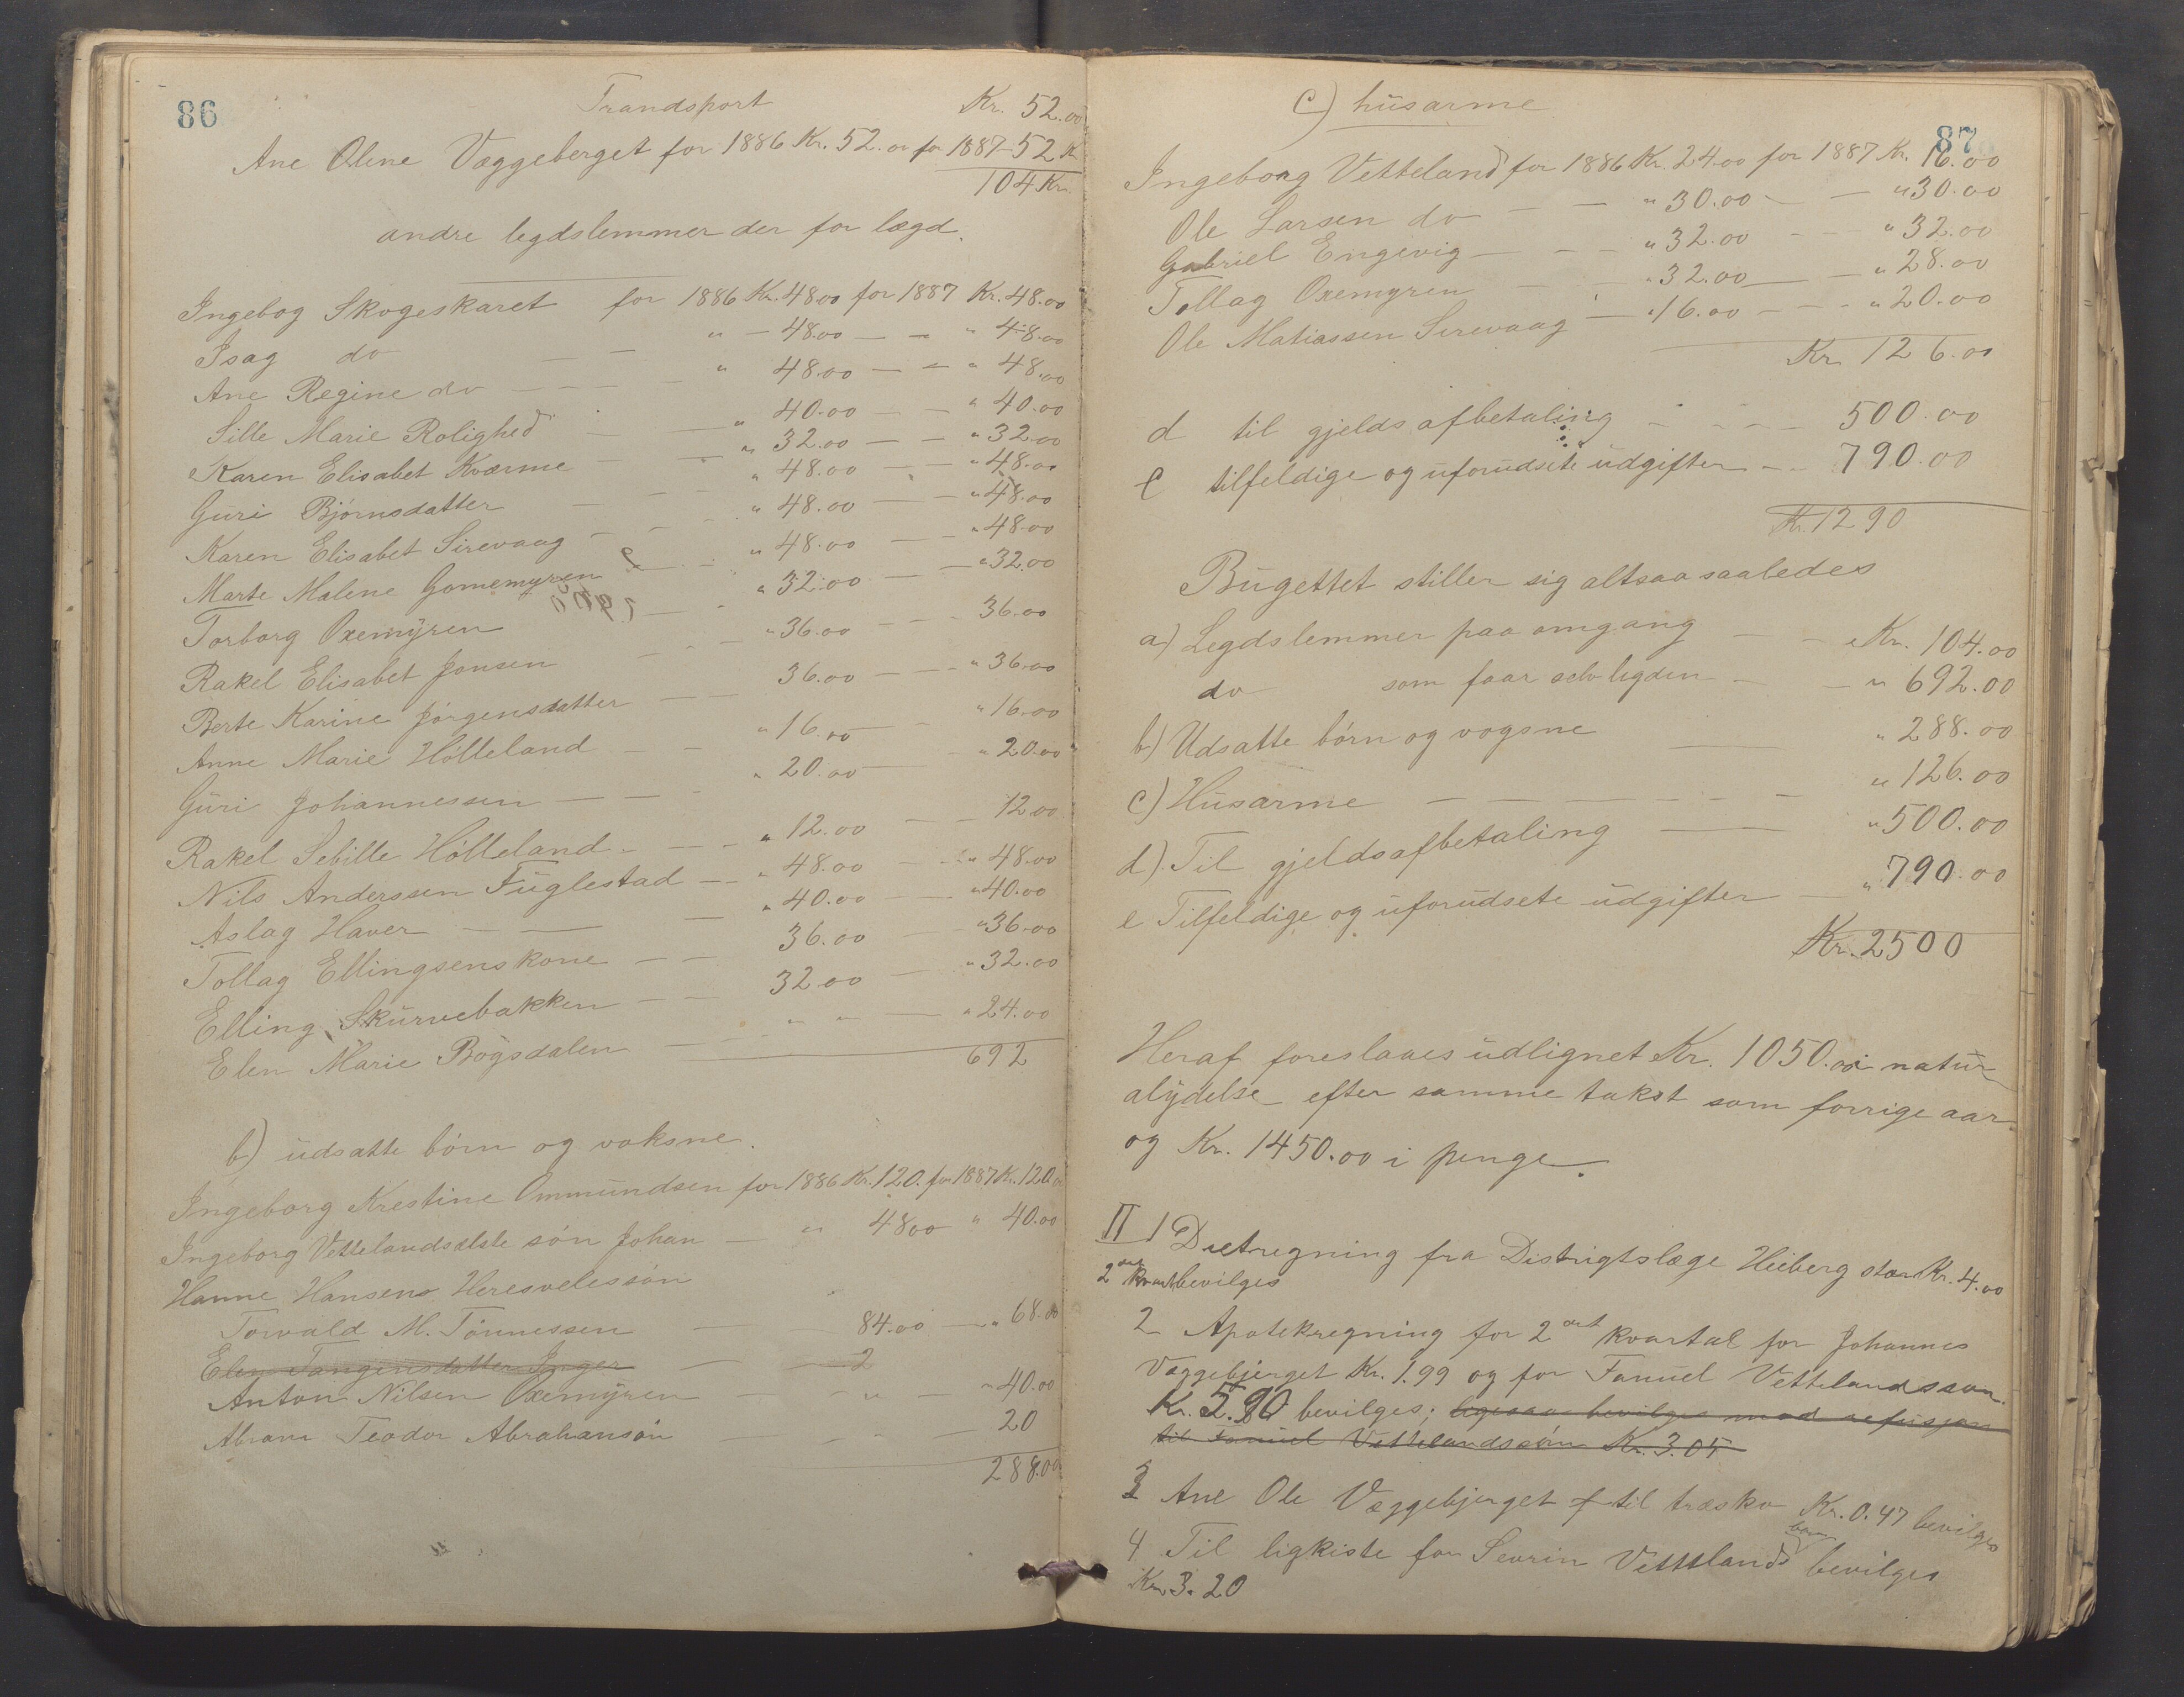 86
Trandsport Kr. 52.00
Ane Oline Væggeberget for 1886 Kr. 52.00 for 1887 - 52 Kr
104 Kr.
andre legdslemmer der for lægd.
Ingebog Skogeskaret for 1886 Kr. 48.00 for 1887 Kr. 48.00
Isag do — — " — 48.00 — — " 48.00
Ane Regine do — — — — " 48.00 — — " 48.00
Sille Marie Rolighed — — " 40.00 — — " 40.00
Karen Elisabet Kværme — — " 32.00 — — " 32.00
Guri Bjørnsdatter — — " 48.00 — — " 48.00
Karen Elisabet Sirevaag — — " 48.00 — — " 48.00
Marte Malene Gomemyren — — " 48.00 — — " 48.00
Torborg Oxemyren — — " 32.00 — — " 32.00
Rakel Elisabet Jonsen — — " 36.00 — — 36.00
Berte Karine Jørgensdatter — — 36.00 — — " 36.00
Anne Marie Hølleland — — " 16.00 — — " 16.00
Guri Johannessen — — " 20.00 — — " 20.00
Rakel Sebille Hølleland — — " 12.00 — — 12.00
Nils Anderssen Fuglestad — — " 48.00 — — " 48.00
Aslag Haver — — " 40.00 — — " 40.00
Tollag Ellingsens kone — — 36.00 — " 36.00
Elling Skurvebakken — — 32.00 — " 32.00
Elen Marie Bøgsdalen — " " — " 24.00
692
b) udsatte børn og voksne.
Ingeborg Krestine Ommundsen for 1886 Kr. 120. for 1887 Kr. 120.00
Ingeborg Vettelands ælste søn Johan — " 48.00 " 40.00
Hanne Hansens Heresvelessøn
Torvald M. Tønnessen — 84.00 — " 68.00
Elen Tangensdatter Inger — — 2
Anton Nilsen Oxemyren — — " — " 40.00
Abram Teodor Abrahansøn — 20
288.00
87
c) husarme
Ingeborg Vetteland for 1886 Kr. 24.00 for 1887 Kr. 16.00
Ole Larsen do — — " 30.00 — — " 30.00
Gabriel Engevig — — " 32.00 — — " 32.00
Tollag Oxemyren — — " 32.00 — — " 28.00
Ole Matiassen Sirevaag — " 16.00 — — " 20.00
Kr. 126.00
d til gjelds afbetaling — — 500.00
e tilfeldige og uforudsete udgifter — 790.00
Kr. 1290
Bugettet stiller sig altsaa saaledes
a) Legdslemmer paa omgang — — Kr. 104.00
do som faar selv legden — — " 692.00
b) Udsatte børn og vogsne — " 288.00
c) Husarme — — — — — " 126.00
d) Til gjeldsafbetaling — — " 500.00
e Tilfeldige og uforudsete udgifter — " 790.00
Kr. 2500
Heraf foreslaaes udlignet Kr. 1050.00 i natur
alydelse efter samme takst som forrige aar
og Kr. 1450.00 i penge.
II 1 Dietregning fra Distrigtslæge Heiberg stor Kr. 4.00
2det kvart bevilges
2 Apotekregning for 2det kvartal for Johannes
Væggebjerget Kr. 1.99 og for Samuel Vettelandsson
Kr. 5.90 bevilges; ligesaa bevilges mod refusjon
til Samuel Vettelandssøn Kr. 3.05
3 Ane Ole Væggebjerget til træsko Kr. 0.47 bevilges
4 Til ligkiste for Sevrin Vettelands barn bevilges
Kr. 3.20